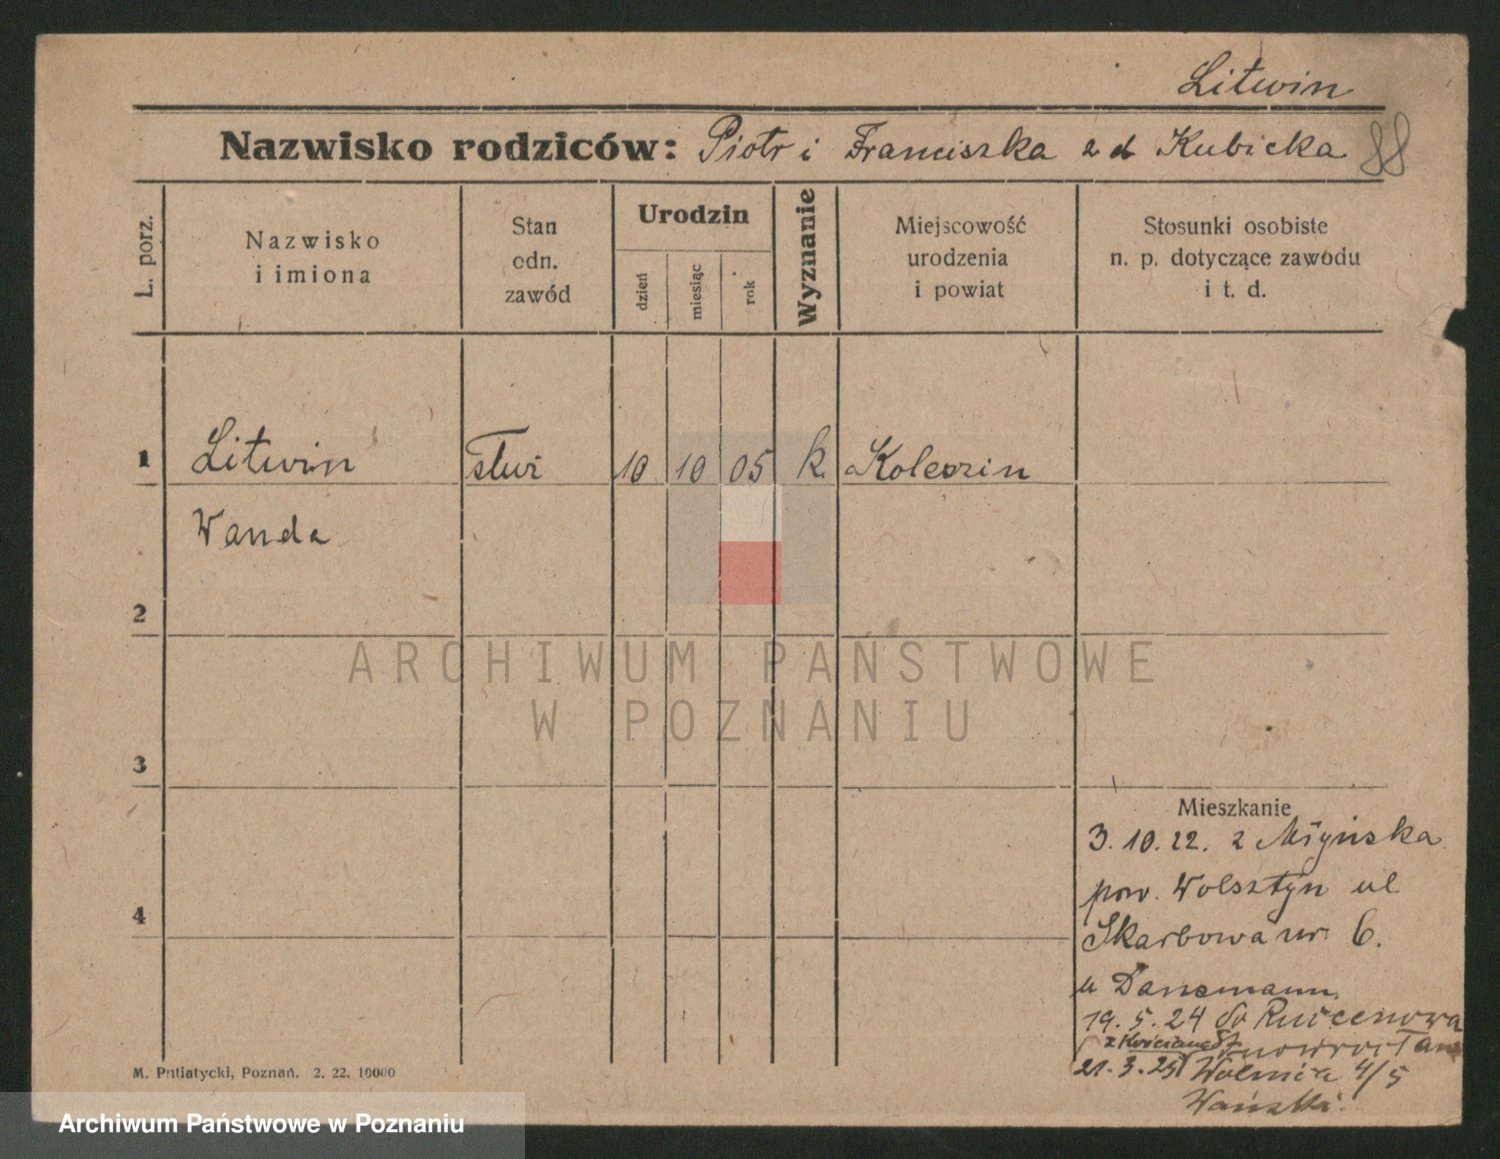 Litwin
Nazwisko rodziców: Piotr i Franciszka z d Kubicka 88
L. porz.
Nazwisko
i imiona
Stan
odn.
zawód
Urodzin
dzień
miesiąc
rok
Wyznanie
Miejscowość
urodzenia
i powiat
Stosunki osobiste
n. p. dotyczące zawodu
i t. d.
1 Litwin 10 10 05 k.
Wanda
2
ARCHIWUM PAŃSTWOWE
W POZNANIU
3
Mieszkanie
3. 10. 22. z
pow. Wolsztyn ul
4
Skarbowa nr 6.
u Dansmann
19. 5. 24 do
21. 3. 25 Wolnica 4/5
M. Putiatycki, Poznań. 2. 22. 10000
Archiwum Państwowe w Poznaniu